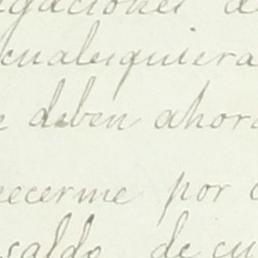 gaciones de
cualesquiera
e deben ahora
ecerme por
saldo de cu